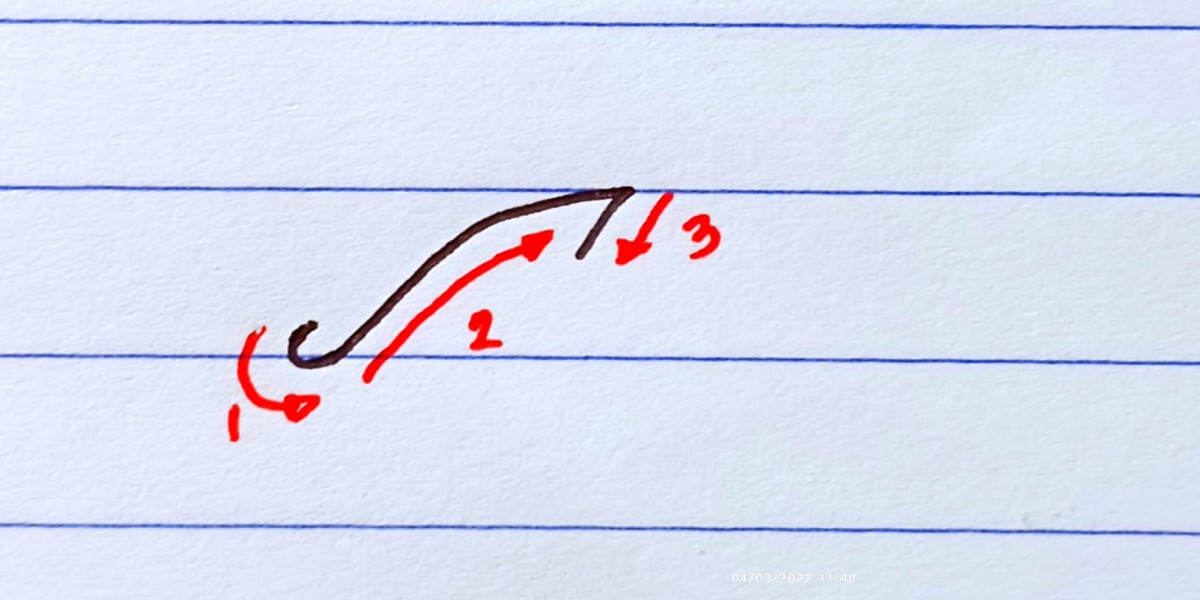 2
3
1
04/03/2022 11:40